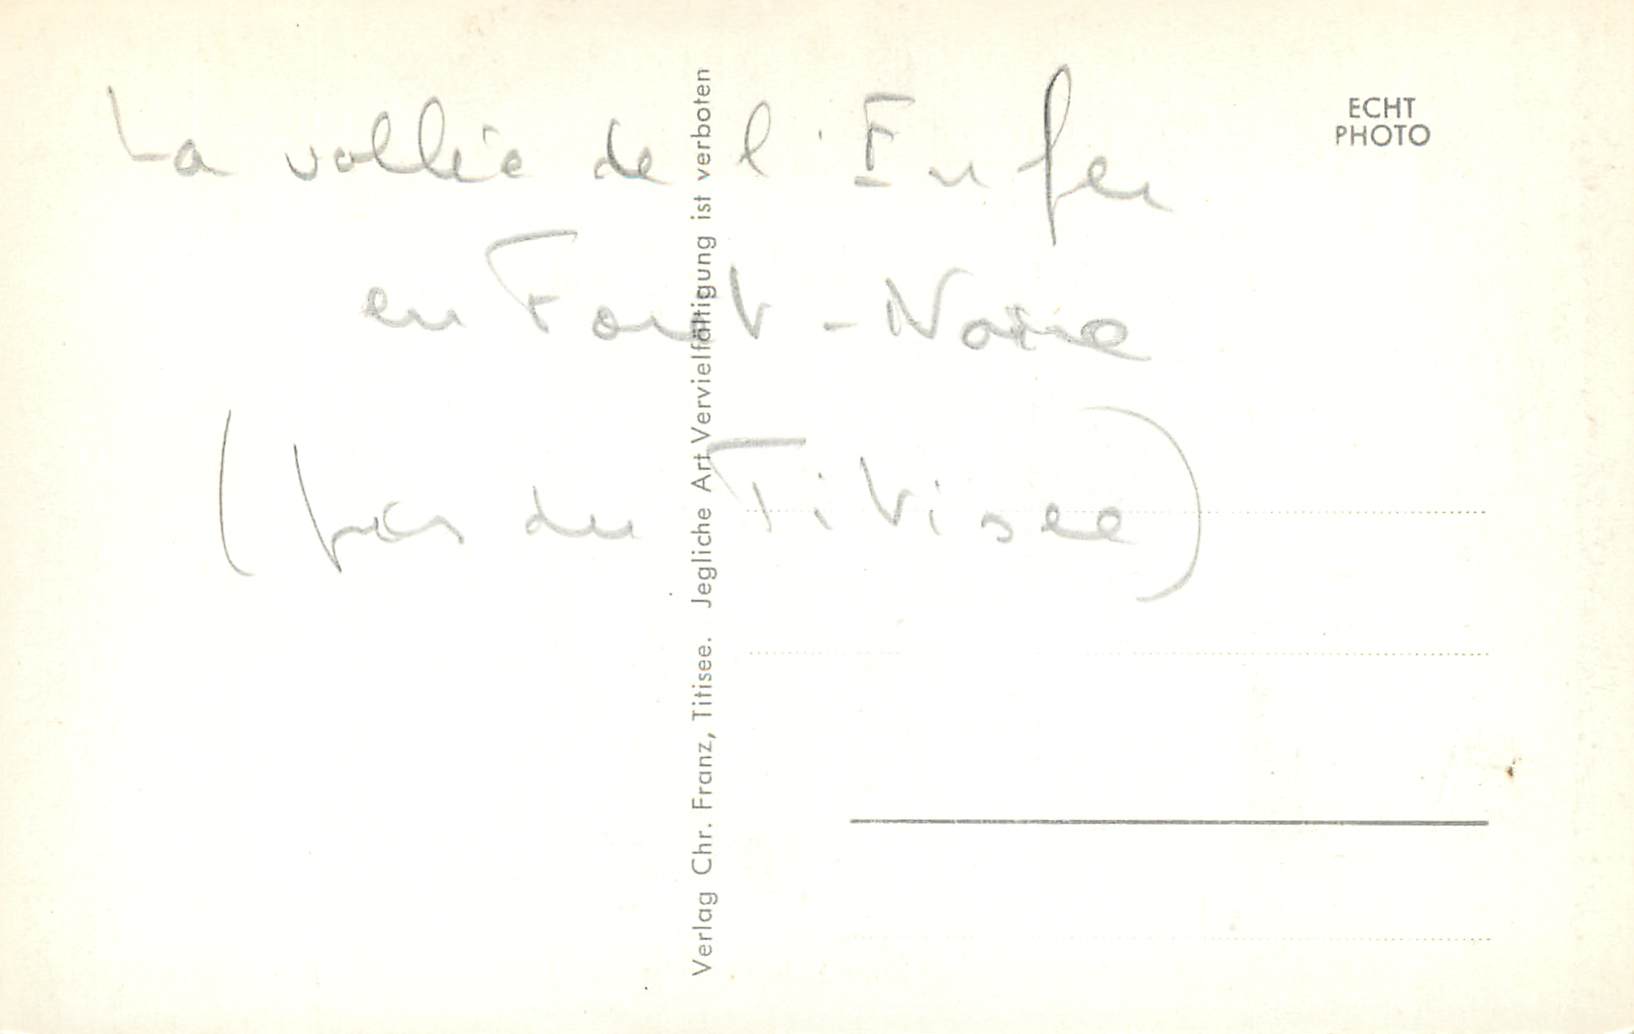 La vallée de l'Enfer
en Forêt-Noire
(près du Titisee)
ECHT
PHOTO
Verlag Chr. Franz, Titisee. Jegliche Art Vervielfältigung ist verboten